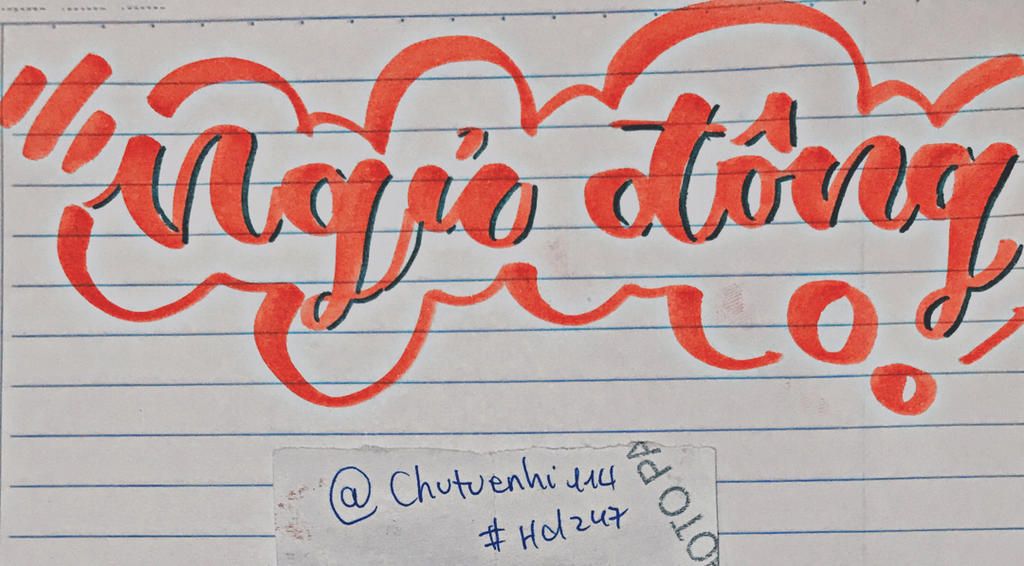 Ngủ đông
@Chutuenhi114
#Hd247
OTO PA